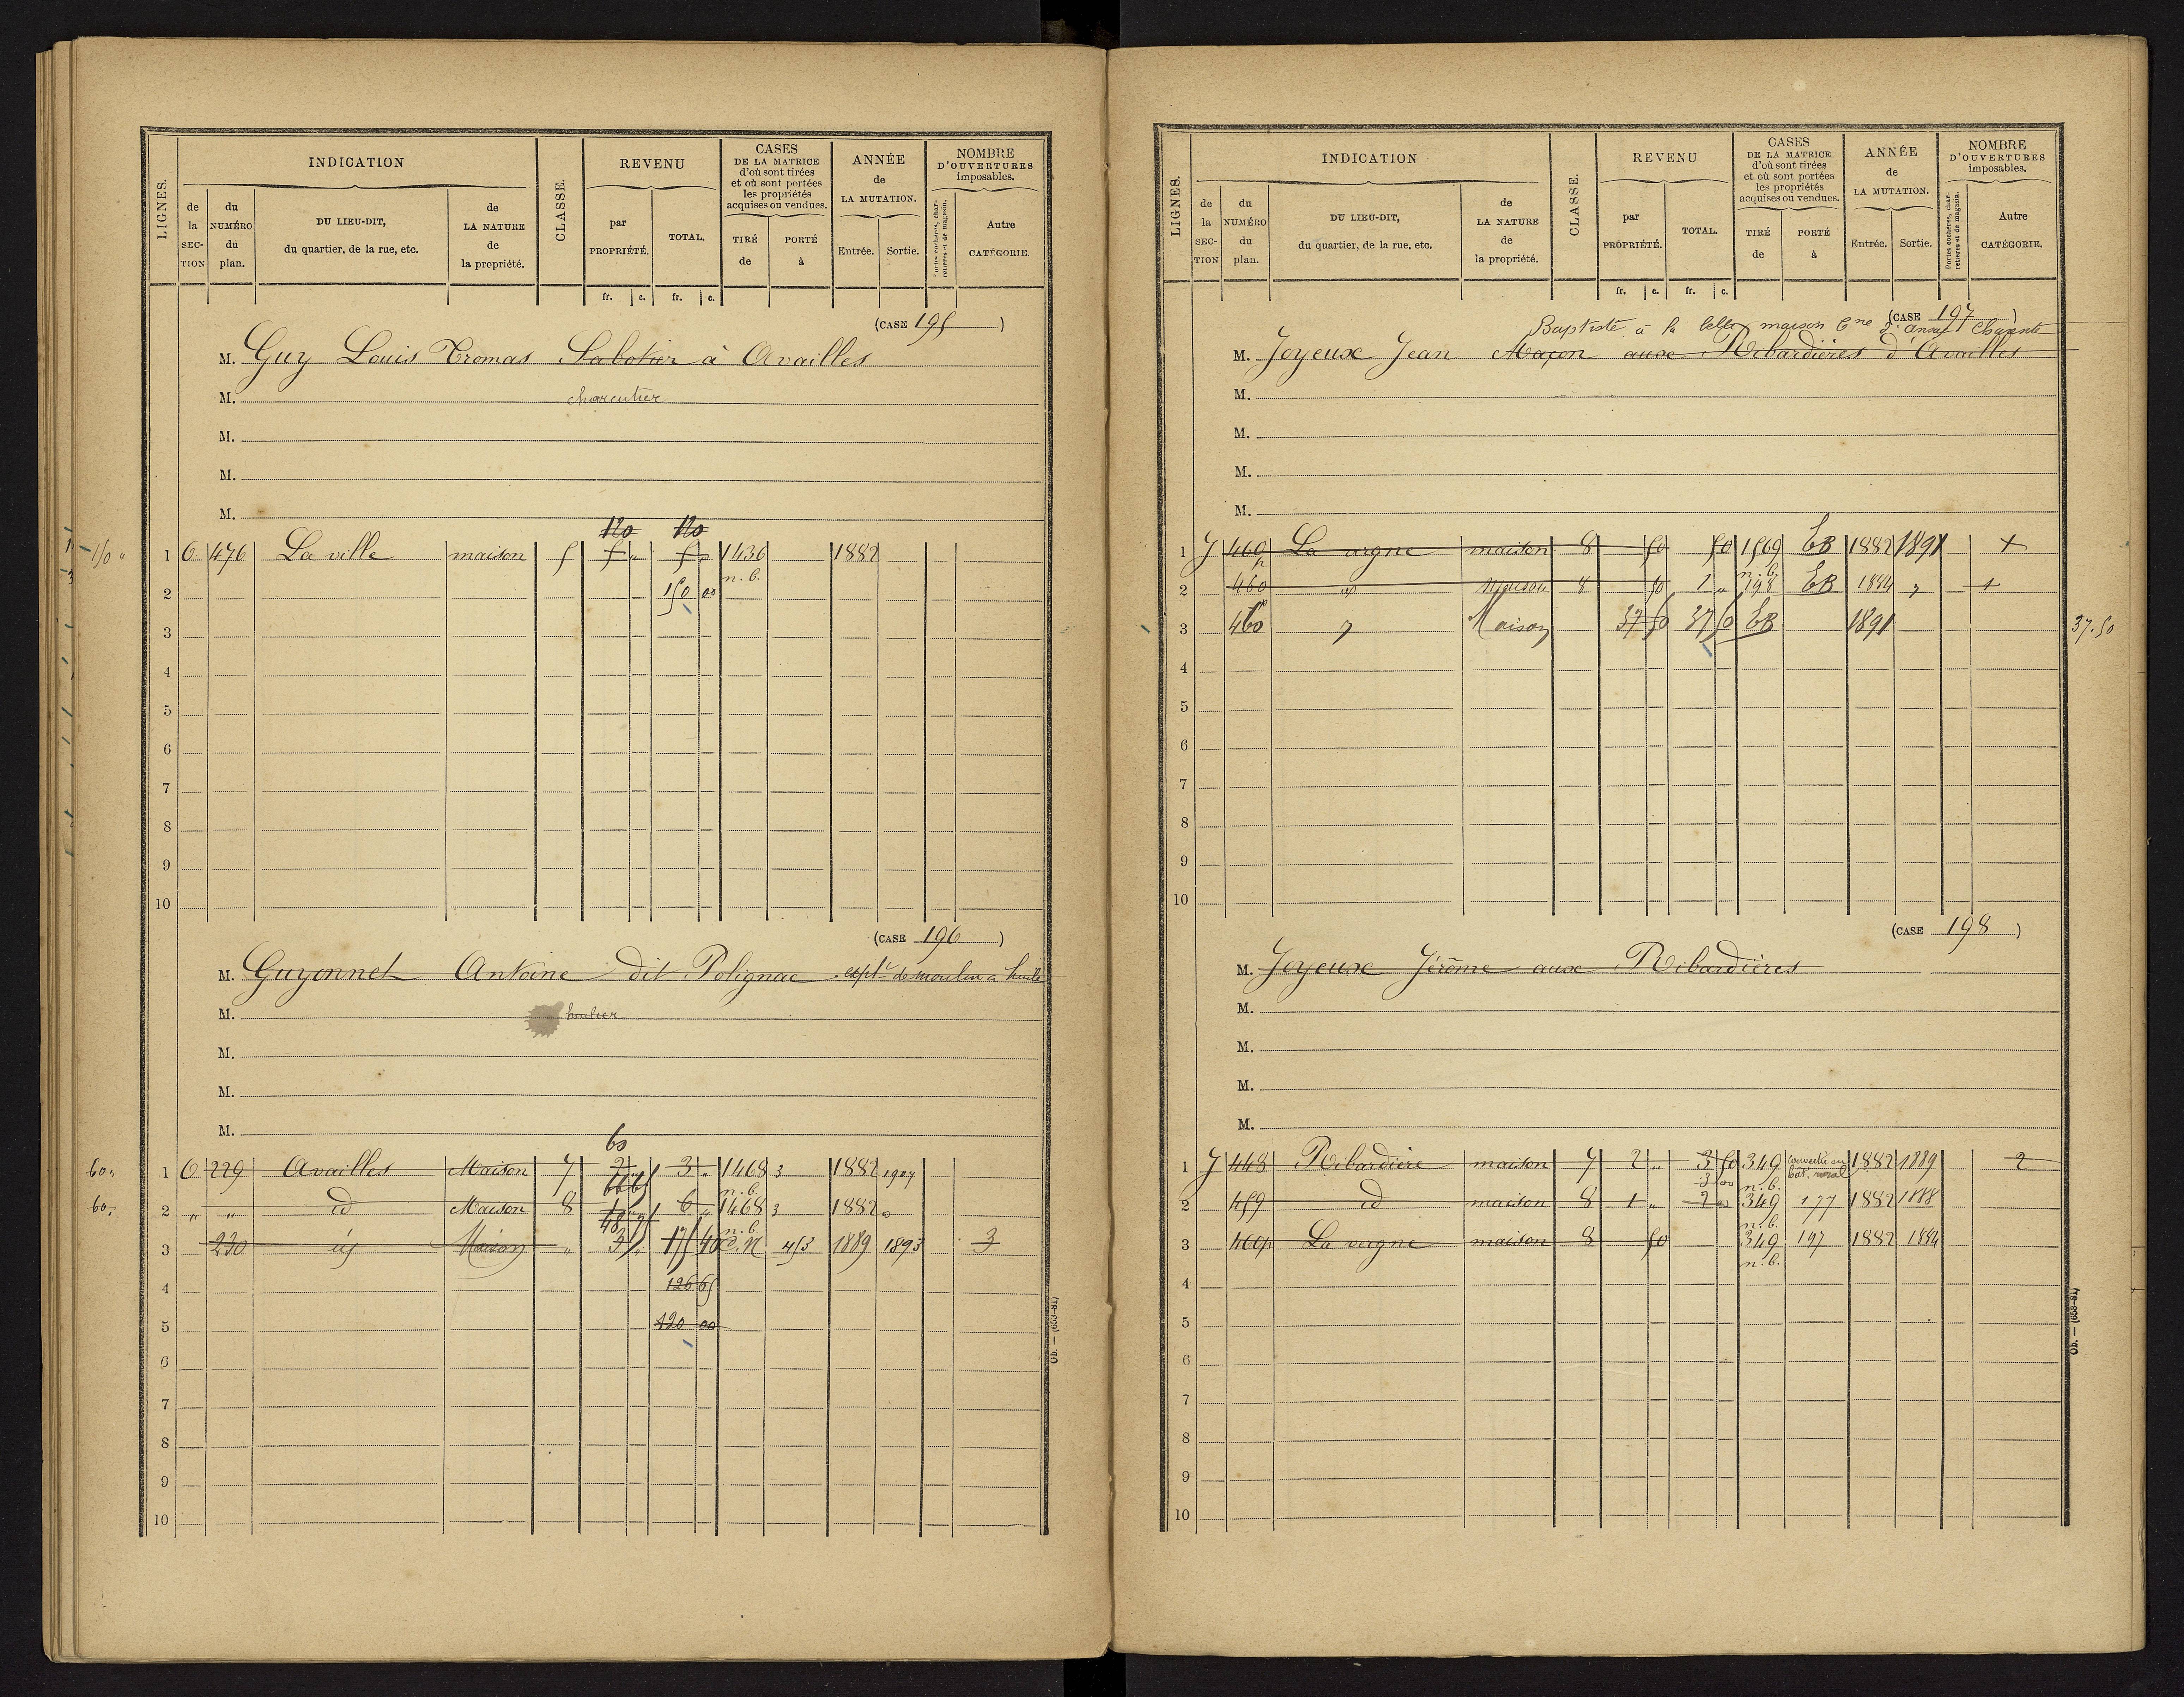 LIGNES.
INDICATION
de la SECTION
du NUMÉRO du plan.
DU LIEU-DIT, du quartier, de la rue, etc.
de LA NATURE de la propriété.
CLASSE.
REVENU
par PROPRIÉTÉ.
TOTAL.
fr. c. fr. c.
CASES DE LA MATRICE d'où sont tirées et où sont portées les propriétés acquises ou vendues.
TIRÉ de
PORTÉ à
ANNÉE de LA MUTATION.
Entrée. Sortie.
NOMBRE D'OUVERTURES imposables.
Portes cochères, charretières et de magasin.
Autre CATÉGORIE.
(CASE 195)
M. Guy Louis Tromas Sabotier à Availles
M. charcutier
M.
M.
M.
120 120
150 " 1 C 476 La ville maison 5 5 " 5 " 1436 1882
n. b.
2 150 00
3
4
5
6
7
8
9
10
(CASE 196)
M. Guyonnet Antoine dit Polignac explt de moulin a huile
M. huilier
M.
M.
M.
60
60 " 1 C 229 Availles Maison 7 2 3 " 1468 3 1882 1907
n. b.
60 " 2 " " id Maison 8 1 6 " 1468 3 1882
48 75 n. b.
3 230 id Maison " 3 " 175 40 d. N 453 1889 1893 3
4 126 65
5 120 00
6
7
8
9
10
Ob. — (633-81)
LIGNES.
INDICATION
de la SECTION
du NUMÉRO du plan.
DU LIEU-DIT, du quartier, de la rue, etc.
de LA NATURE de la propriété.
CLASSE.
REVENU
par PROPRIÉTÉ.
TOTAL.
fr. c. fr. c.
CASES DE LA MATRICE d'où sont tirées et où sont portées les propriétés acquises ou vendues.
TIRÉ de
PORTÉ à
ANNÉE de LA MUTATION.
Entrée. Sortie.
NOMBRE D'OUVERTURES imposables.
Portes cochères, charretières et de magasin.
Autre CATÉGORIE.
(CASE 197)
Baptiste à la belle maison Cne d'ansac Charente
M. Joyeux Jean Maçon aux Ribardières d'Availles
M.
M.
M.
M.
1 J 460 La vergne maison 8 50 50 1569 CB 1882 1891 +
n. b.
2 460 maison 8 50 1 " 198 CB 1884 " +
3 460 " Maison 37 50 37 50 CB 1891 37.50
4
5
6
7
8
9
10
(CASE 198)
M. Joyeux Jérôme aux Ribardières
M.
M.
M.
M.
1 J 448 Ribardière maison 7 2 " 3 50 349 Convertie en bât. rural 1882 1889 2
3 00 n. b.
2 459 id maison 8 1 " 2 00 349 177 1882 1888
n. b.
3 460p La vergne maison 8 50 349 197 1882 1884
n. b.
4
5
6
7
8
9
10
Ob. — (633-81)